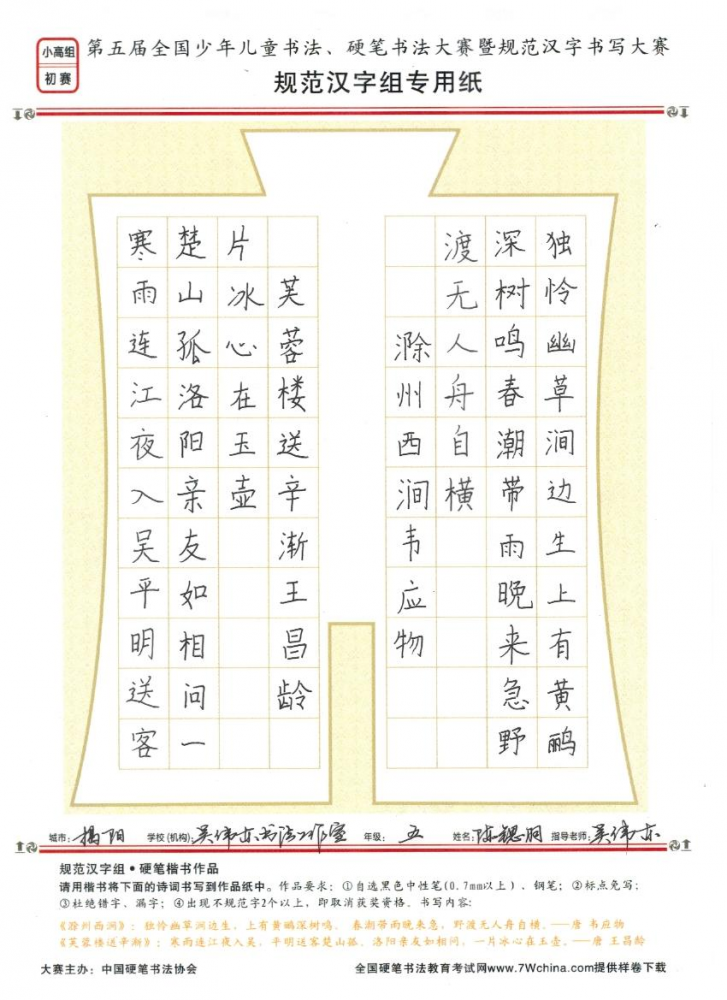 小高组
初赛
第五届全国少年儿童书法、硬笔书法大赛暨规范汉字书写大赛
规范汉字组专用纸
独怜幽草涧边生上有黄鹂
深树鸣春潮带雨晚来急野
渡无人舟自横
滁州西涧韦应物
寒雨连江夜入吴平明送客
楚山孤洛阳亲友如相问一
片冰心在玉壶
芙蓉楼送辛渐王昌龄
城市：揭阳 学校(机构)：吴伟亦书法工作室 年级：五 姓名：陈 指导老师：吴伟亦
规范汉字组•硬笔楷书作品
请用楷书将下面的诗词书写到作品纸中。作品要求：①自选黑色中性笔(0.7mm以上)、钢笔；②标点免写；
③杜绝错字、漏字；④出现不规范字2个以上，即取消获奖资格。书写内容：
《滁州西涧》：独怜幽草涧边生，上有黄鹂深树鸣。 春潮带雨晚来急，野渡无人舟自横。——唐 韦应物
《芙蓉楼送辛渐》：寒雨连江夜入吴，平明送客楚山孤。洛阳亲友如相问，一片冰心在玉壶。——唐 王昌龄
大赛主办：中国硬笔书法协会 全国硬笔书法教育考试网www.7Wchina.com提供样卷下载